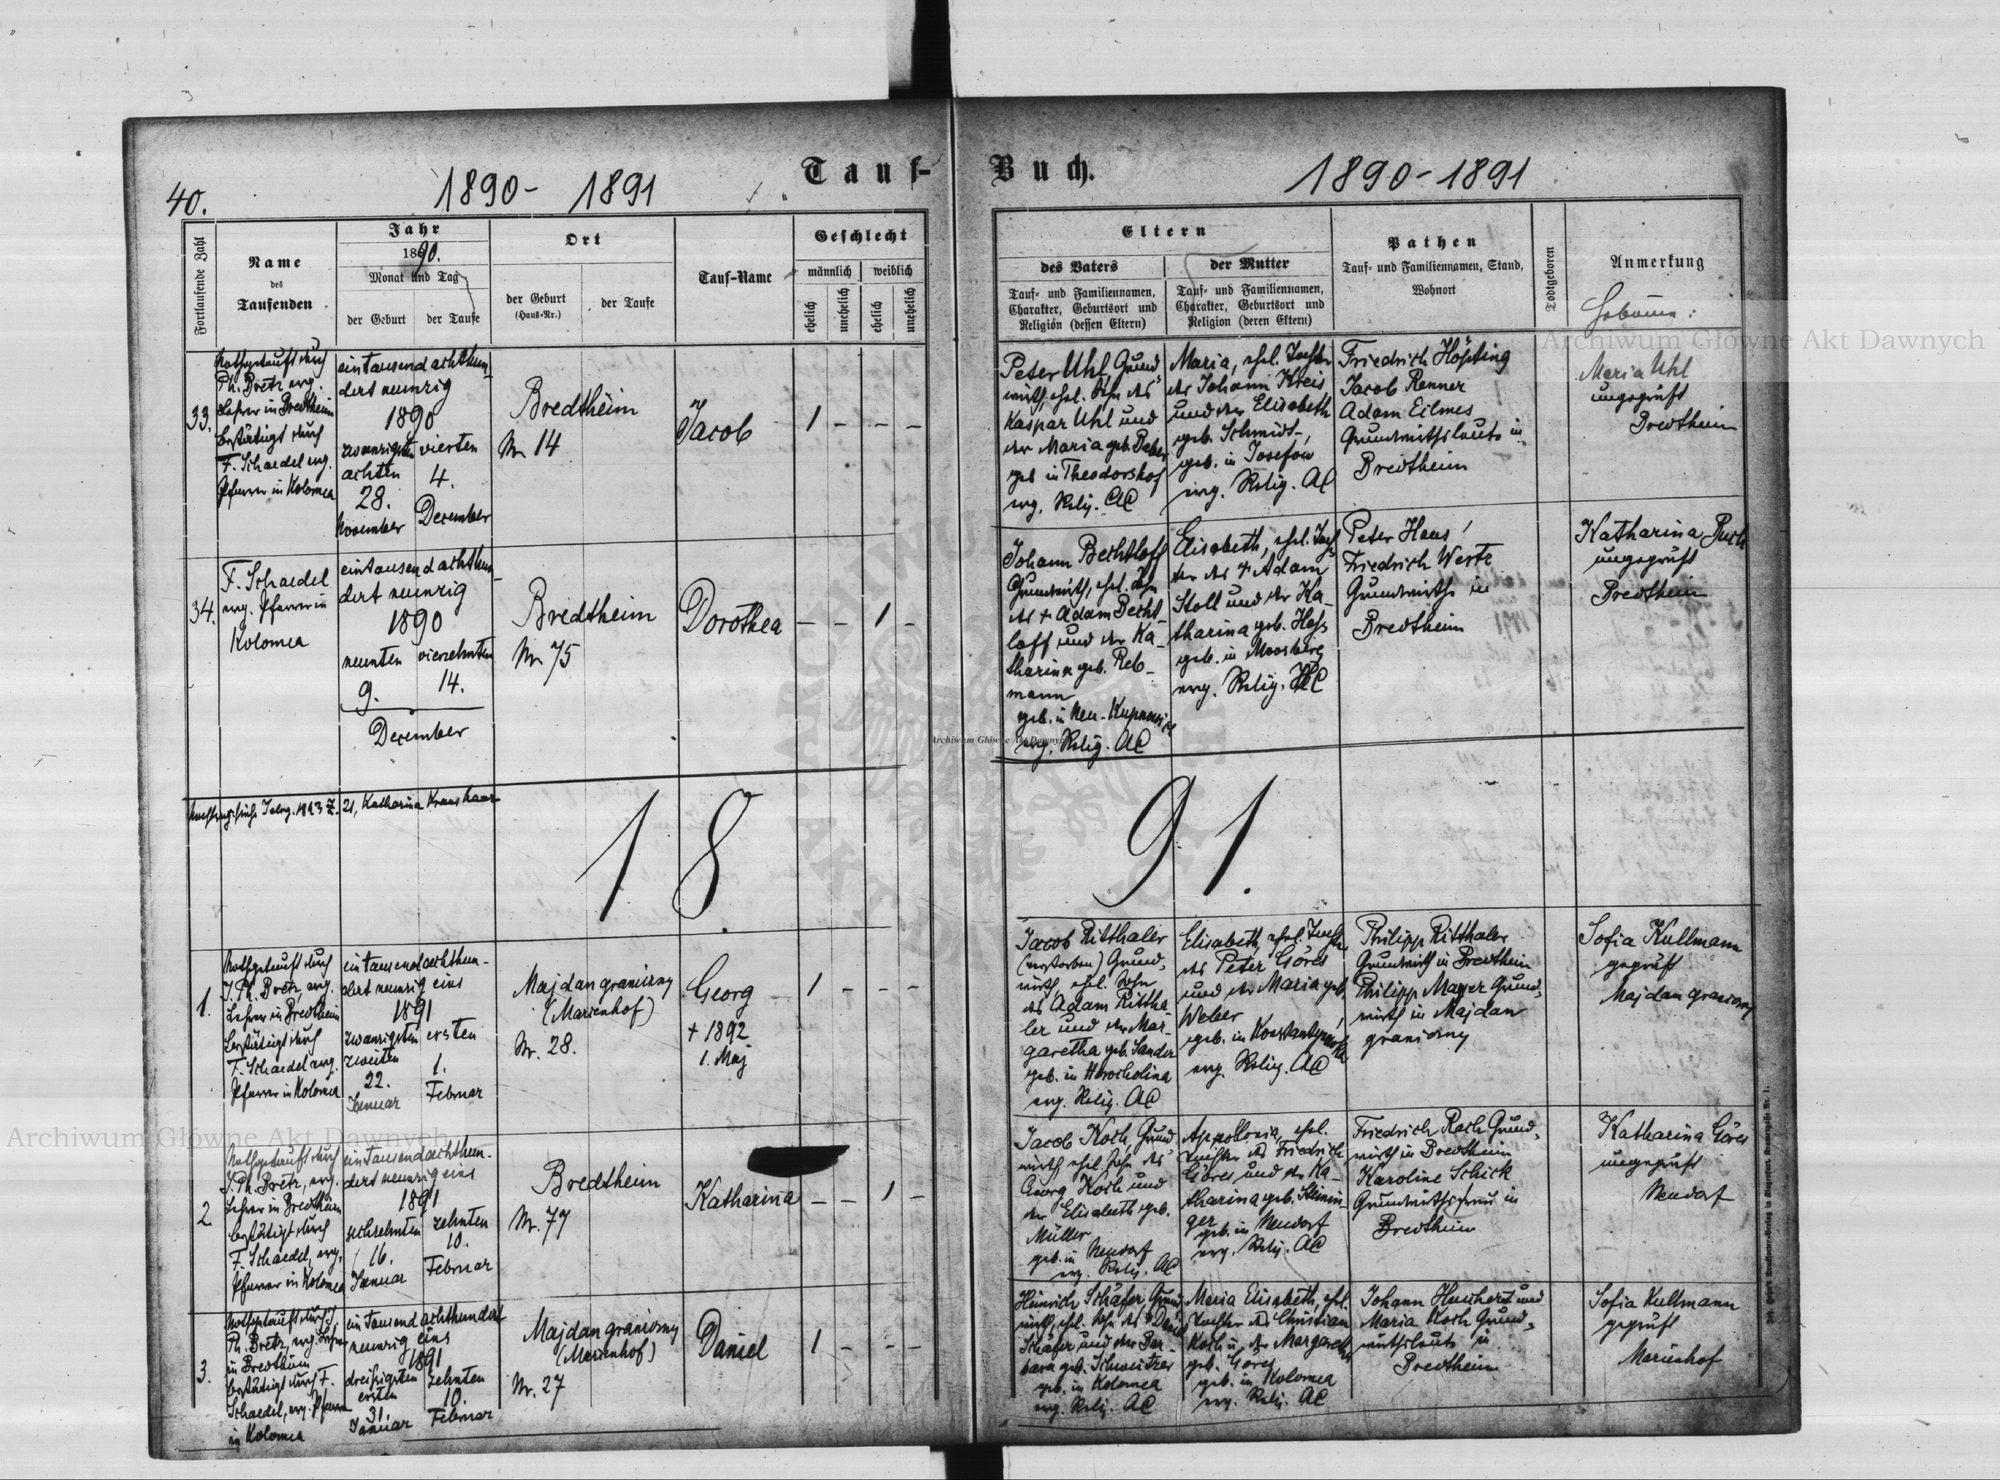 40.
1890 - 1891
Tauf-
Buch.
1890-1891
Fortlaufende Zahl
Name
des
Taufenden
Jahr
1890.
Monat und Tag
der Geburt
der Taufe
Ort
der Geburt
(Haus-Nr.)
der Taufe
Tauf-Name
Geschlecht
männlich
weiblich
ehelich
unehelich
ehelich
unehelich
Eltern
des Vaters
Tauf- und Familiennamen,
Charakter, Geburtsort und
Religion (dessen Eltern)
der Mutter
Tauf- und Familiennamen,
Charakter, Geburtsort und
Religion (deren Eltern)
Pathen
Tauf- und Familiennamen, Stand,
Wohnort
Todtgeboren
Anmerkung
33.
Nothgetauft durch
Ph. Bretz evg.
Lehrer in Bredtheim
bestätigt durch
F. Schaedel evg.
Pfarrer in Kolomea
eintausendachthun-
dert neunzig
1890
zwanzigsten vierten
achten
28. 4.
November December
Bredtheim
Nr. 14
Jacob
1 - - -
Peter Uhl, Grund
wirth, ehl. Sohn des
Kaspar Uhl und
der Maria geb.
geb. in Theodorshof
evg. Relig. AC
Maria, ehl. Tochter
des Johann Kreis
und der Elisabeth
geb. Schmidt,
geb. in Josefow
evg. Relig. AC
Friedrich Höpfing
Jacob Renner
Adam Eilmes
Grundwirthsleute in
Bredtheim
Maria Uhl
ungeprüft
Bredtheim
34.
F. Schaedel
evg. Pfarrer in
Kolomea
eintausendachthun-
dert neunzig
1890
neunten vierzehnten
9. 14.
December
Bredtheim
Nr. 75
Dorothea
- - 1 -
Johann Bechtloff
Grundwirth, ehl. Sohn
des + Adam Becht-
loff und der Ka-
tharina geb. Reb-
mann
geb. in Neu-
evg. Relig. AC
Elisabeth, ehl. Toch
ter des + Adam
Stoll und der Ka-
tharina geb. Hess
geb. in Moosberg
evg. Relig. HC
Peter Haas
Friedrich Wertz
Grundwirthe in
Bredtheim
Katharina
ungeprüft
Bredtheim
21, Katharina Kranshaar
18
91.
1.
Nothgetauft durch
J. Ph. Bretz, evg.
Lehrer in Bredtheim
bestätigt durch
F. Schaedel evg.
Pfarrer in Kolomea
eintausendachthun-
dert neunzig eins
1891
zwanzigsten ersten
zweiten
22. 1.
Januar Februar
Majdan graniczny
(Marienhof)
Nr. 28.
Georg
+ 1892
1. Maj
1 - - -
Jacob Ritthaler
(verstorben) Grund-
wirth, ehl. Sohn
des Adam Rittha-
ler und der Mar-
garetha geb. Sander
geb. in Horocholina
evg. Relig. AC
Elisabeth, ehl. Tochter
des Peter Göres
und der Maria geb.
Weber
geb. in
evg. Relig. AC
Philipp Ritthaler
Grundwirth in Bredtheim
Philipp Mayer Grund-
wirth in Majdan
graniczny
Sofia Kullmann
geprüft
Majdan graniczny
2
Nothgetauft durch
J. Ph. Bretz, evg.
Lehrer in Bredtheim
bestätigt durch
F. Schaedel, evg.
Pfarrer in Kolomea
eintausendachthun-
dert neunzig eins
1891
sechzehnten zehnten
16. 10.
Januar Februar
Bredtheim
Nr. 77
Katharina
- - 1 -
Jacob Koch, Grund
wirth, ehl. Sohn des
Georg Koch und
der Elisabeth geb.
Müller
geb. in Neudorf
evg. Relig. AC
Appollonia, ehl.
Tochter des Friedrich
Göres und der Ka-
tharina geb. Steinin-
ger
geb. in Neudorf
evg. Relig. AC
Friedrich Rech Grund-
wirth in Bredtheim
Karoline Schick
Grundwirthsfrau in
Bredtheim
Katharina Göres
ungeprüft
Neudorf
3.
Nothgetauft durch J.
Ph. Bretz, evg. Lehrer
in Bredtheim
bestätigt durch F.
Schaedel, evg. Pfarrer
in Kolomea
eintausend achthundert
neunzig eins
1891
dreißigsten zehnten
ersten
31. 10.
Januar Februar
Majdan graniczny
(Marienhof)
Nr. 27
Daniel
1 - - -
Heinrich Schäfer, Grund
wirth, ehl. Sohn des Daniel
Schäfer und der Bar-
bara geb. Schweitzer
geb. in Kolomea
evg. Relig. AC
Maria Elisabeth, ehl.
Tochter des Christian
Koch u. der Margaretha
geb. Göres
geb. in Kolomea
evg. Relig. AC
Johann und
Maria Koch Grund-
wirthsleute in
Bredtheim
Sofia Kullmann
geprüft
Marienhof
Archiwum Główne Akt Dawnych
Archiwum Główne Akt Dawnych
Archiwum Główne Akt Dawnych